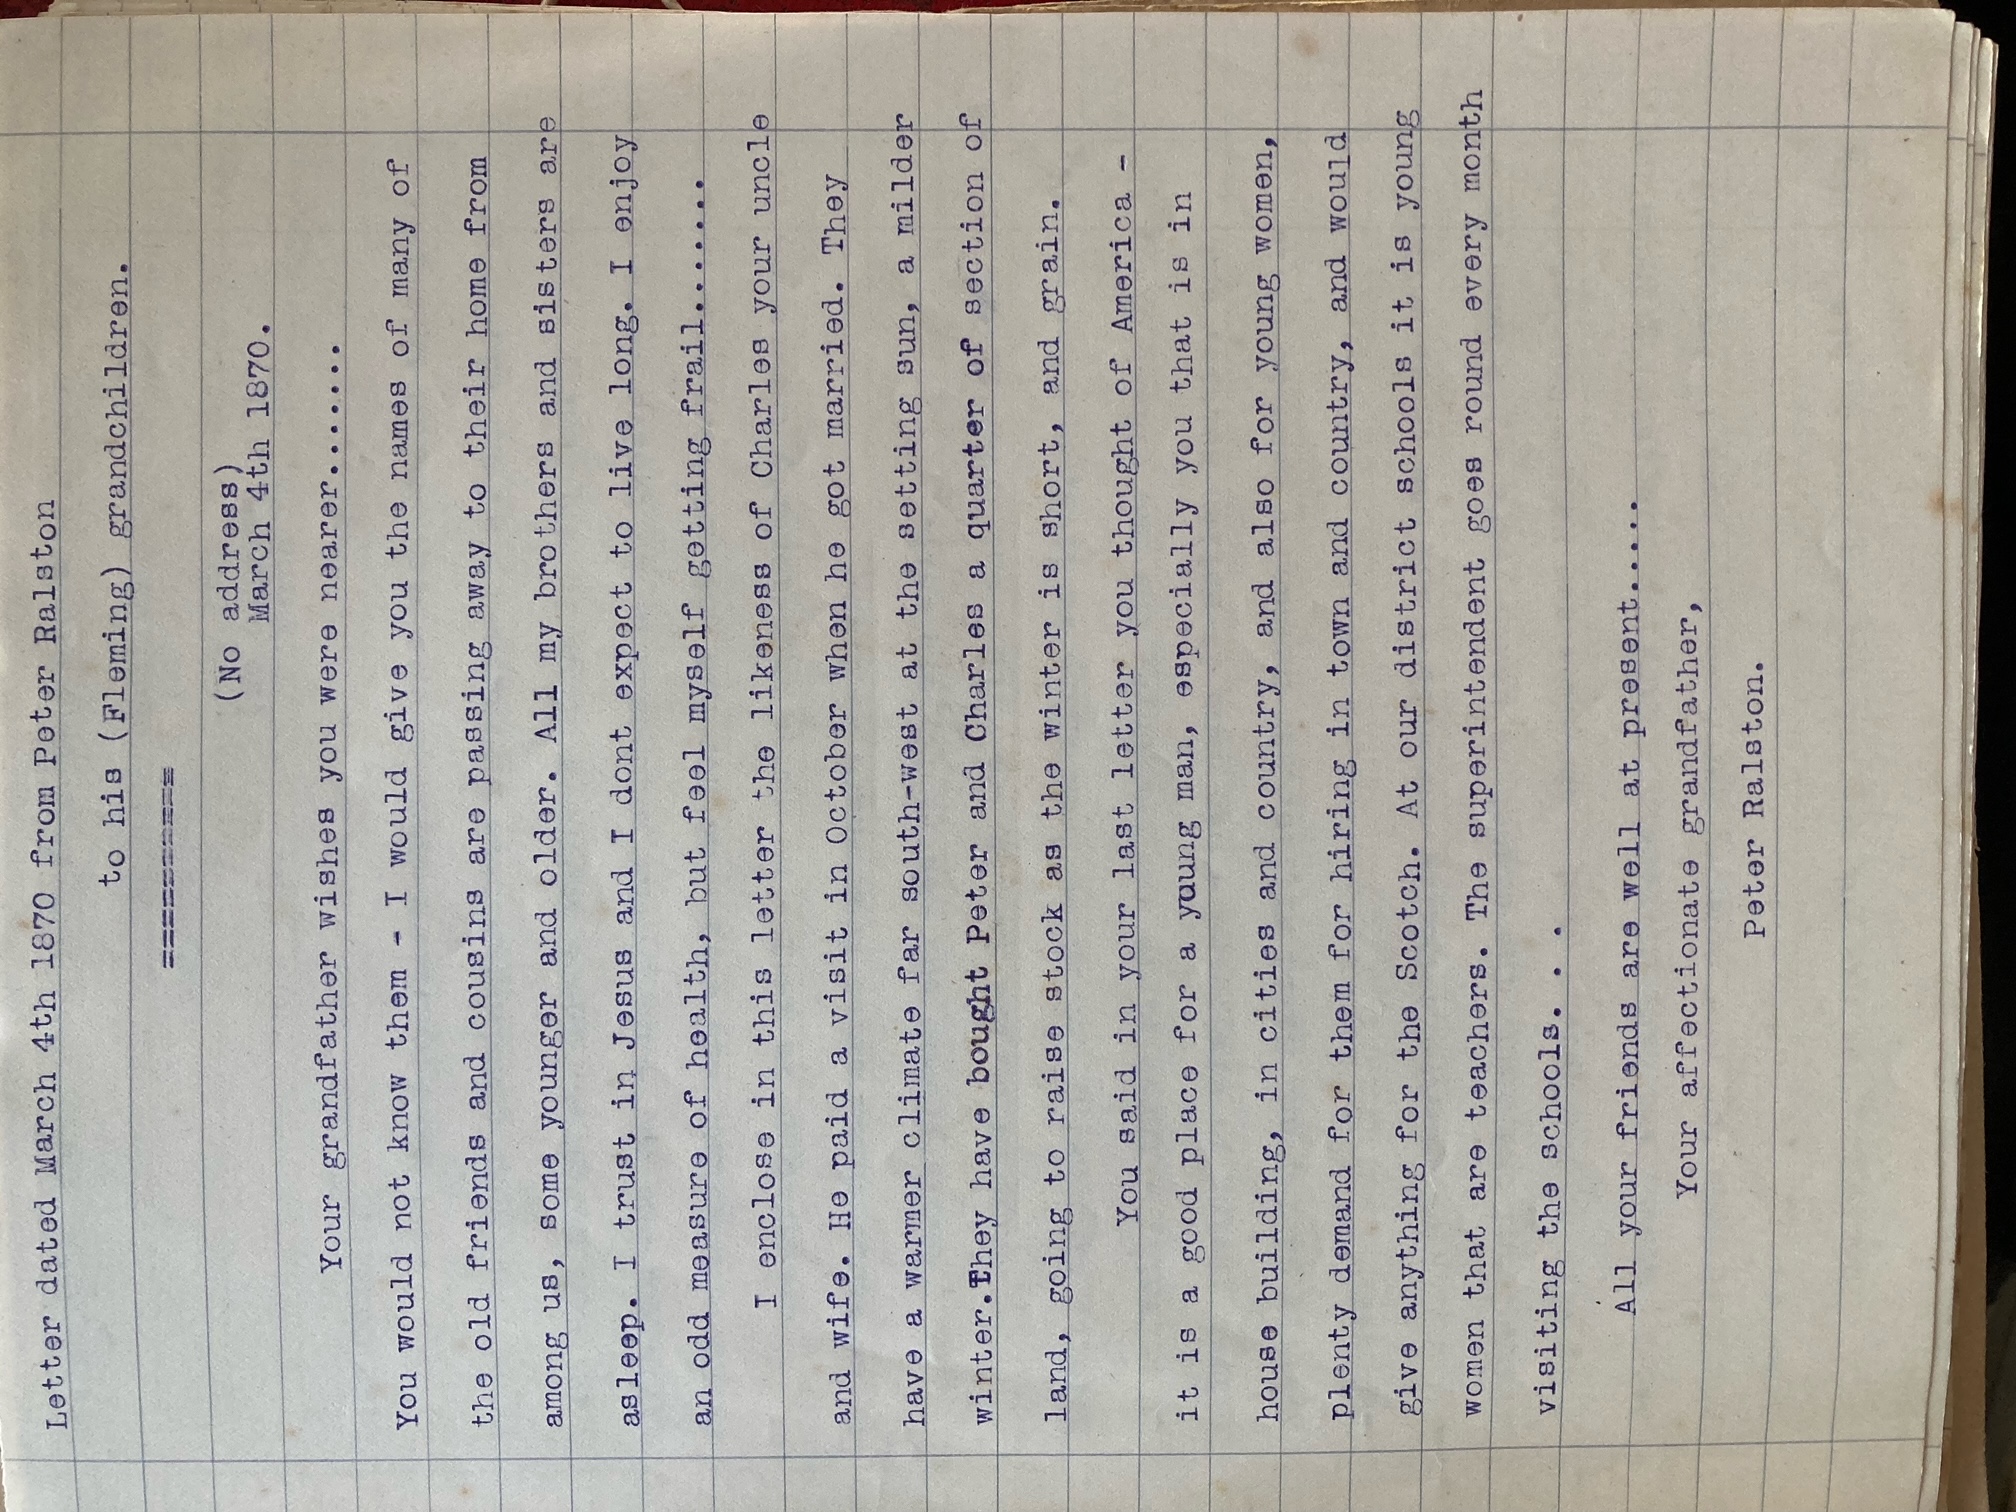 Letter dated March 4th 1870 from Peter Ralston
to his (Fleming) grandchildren.
==========
(No address)
March 4th 1870.
Your grandfather wishes you were nearer.......
You would not know them - I would give you the names of many of
the old friends and cousins are passing away to their home from
among us, some younger and older. All my brothers and sisters are
asleep. I trust in Jesus and I dont expect to live long. I enjoy
an odd measure of health, but feel myself getting frail.......
I enclose in this letter the likeness of Charles your uncle
and wife. He paid a visit in October when he got married. They
have a warmer climate far south-west at the setting sun, a milder
winter.They have bought Peter and Charles a quarter of section of
land, going to raise stock as the winter is short, and grain.
You said in your last letter you thought of America -
it is a good place for a yuung man, especially you that is in
house building, in cities and country, and also for young women,
plenty demand for them for hiring in town and country, and would
give anything for the Scotch. At our district schools it is young
women that are teachers. The superintendent goes round every month
visiting the schools. . .
All your friends are well at present.....
Your affectionate grandfather,
Peter Ralston.